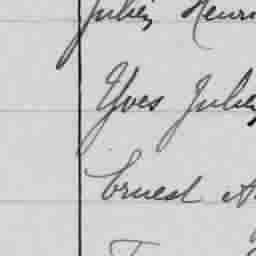 Julien Henri
Yves Julien
Ernest A